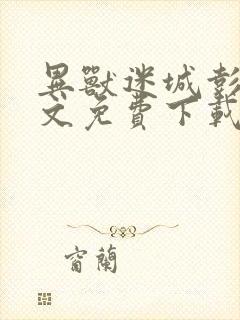 異獸迷城彭
文免費下載
窗蘭